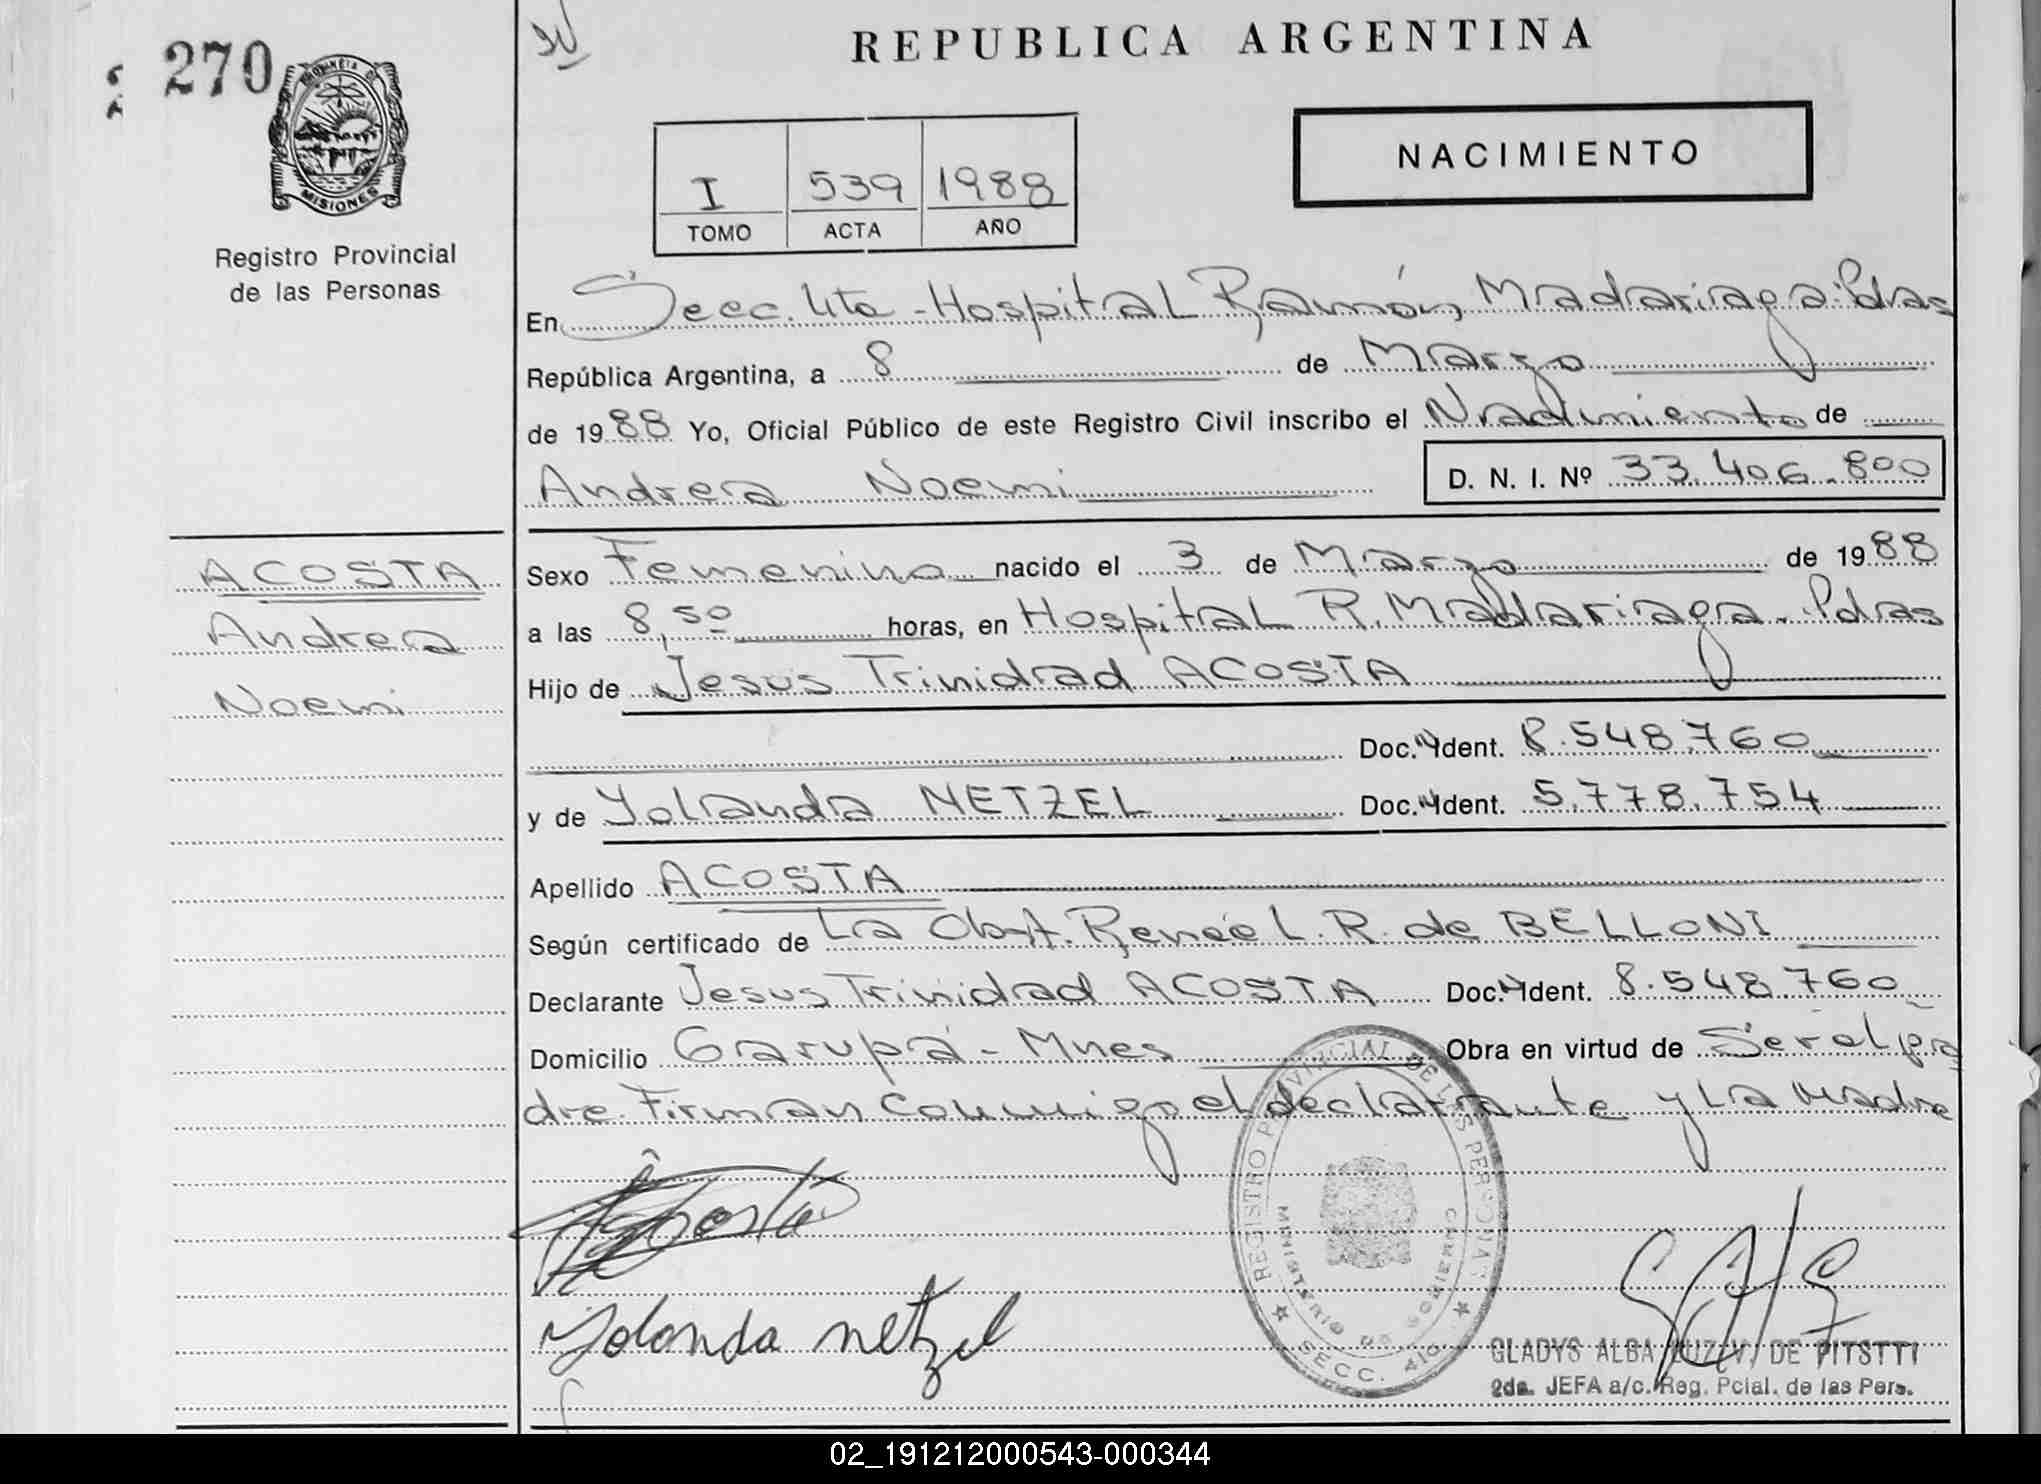 270
PROVINCIA DE
MISIONES
Registro Provincial
de las Personas
REPUBLICA ARGENTINA
NACIMIENTO
I 539 1988
TOMO ACTA AÑO
En Secc. 4ta - Hospital Ramón Madariaga. Pdas
República Argentina, a 8 de Marzo
de 1988 Yo, Oficial Público de este Registro Civil inscribo el Nacimiento de
Andrea Noemi
D. N. I. Nº 33.406.800
ACOSTA
Andrea
Noemi
Sexo Femenino nacido el 3 de Marzo de 1988
a las 8,50 horas, en Hospital R. Madariaga. Pdas
Hijo de Jesus Trinidad ACOSTA
Doc. Ident. 8.548.760
y de Yolanda NETZEL Doc. Ident. 5.778.754
Apellido ACOSTA
Según certificado de La Obst. Reneé L. R. de BELLONI
Declarante Jesus Trinidad ACOSTA Doc. Ident. 8.548.760
Domicilio Garupá - Mnes Obra en virtud de Ser el pa
dre. Firman conmigo el declarante y la madre
Acosta
Yolanda netzel
REGISTRO PROVINCIAL DE LAS PERSONAS
MINISTERIO DE GOBIERNO
SECC. 4ta
GLADYS ALBA LUZ V. DE PITSTTI
2da. JEFA a/c. Reg. Pcial. de las Pers.
02_191212000543-000344